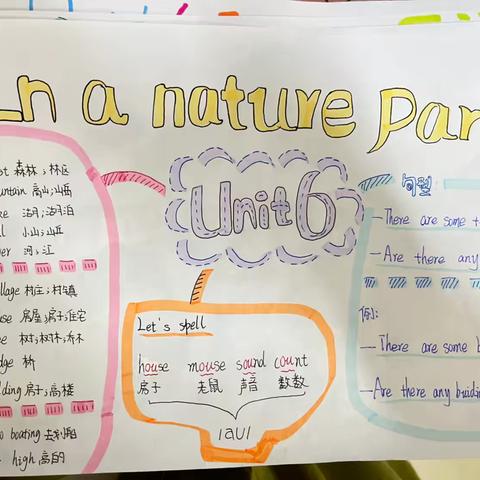 In a nature Par
st 森林；林区
untain 高山；山岳
ke 湖；湖泊
ll 小山；山丘
ver 河；江
illage 村庄；村镇
use 房屋；房子；住宅
ee 树；树林；乔木
dge 桥
lding 房子；高楼
o boating 去划船
high 高的
Unit 6
Let's spell
house mouse sound count
房子 老鼠 声音 数数
/aU/
句型
—There are some t
—Are there any
例：
—There are some b
—Are there any buidin